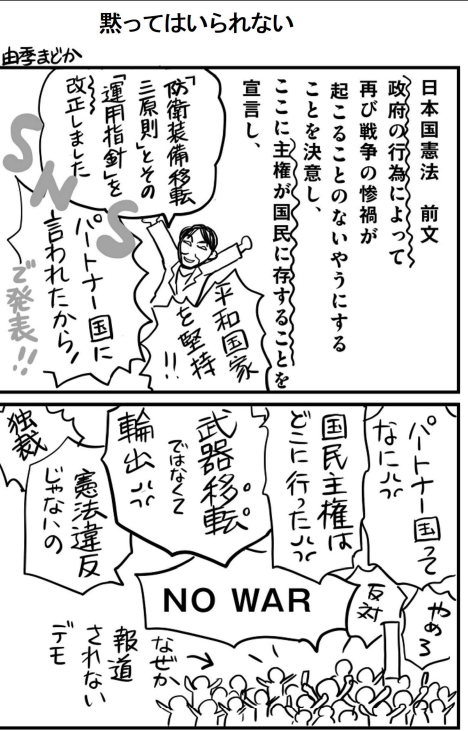 黙ってはいられない
由季まどか
日本国憲法　前文
政府の行為によって
再び戦争の惨禍が
起こることのないやうにする
ことを決意し、
ここに主権が国民に存することを
宣言し、
「防衛装備移転
三原則」とその
「運用指針」を
改正しました
SNS
で発表!!
パートナー国に
言われたから!
平和国家
を堅持
!!
パートナー国って
なに
国民主権は
どこに行った
武器移転。
ではなくて
輸出
憲法違反
じゃないの
独裁
やめろ
反対
NO WAR
なぜか
報道
されない
デモ